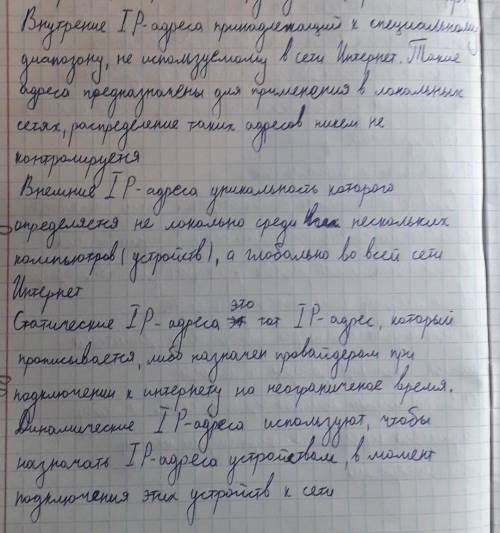 Внутрение IP-адреса принадлежащий к специальному
диапозону, не используемому в сети Интернет. Такие
адреса предназначены для применения в локальных
сетях, распределение таких адресов никем не
контролируется
Внешние IP-адреса уникальность которого
определяется не локально среди нескольких
компьютров (устройств), а глобально во всей сети
Интернет
Статические IP-адреса это тот IP-адрес, который
прописывается, либо назначен провайдерам при
подключении к интернету на неограниченое время.
Динамические IP-адреса используют, чтобы
назначать IP-адреса устройствам, в момент
подключения этих устройств к сети